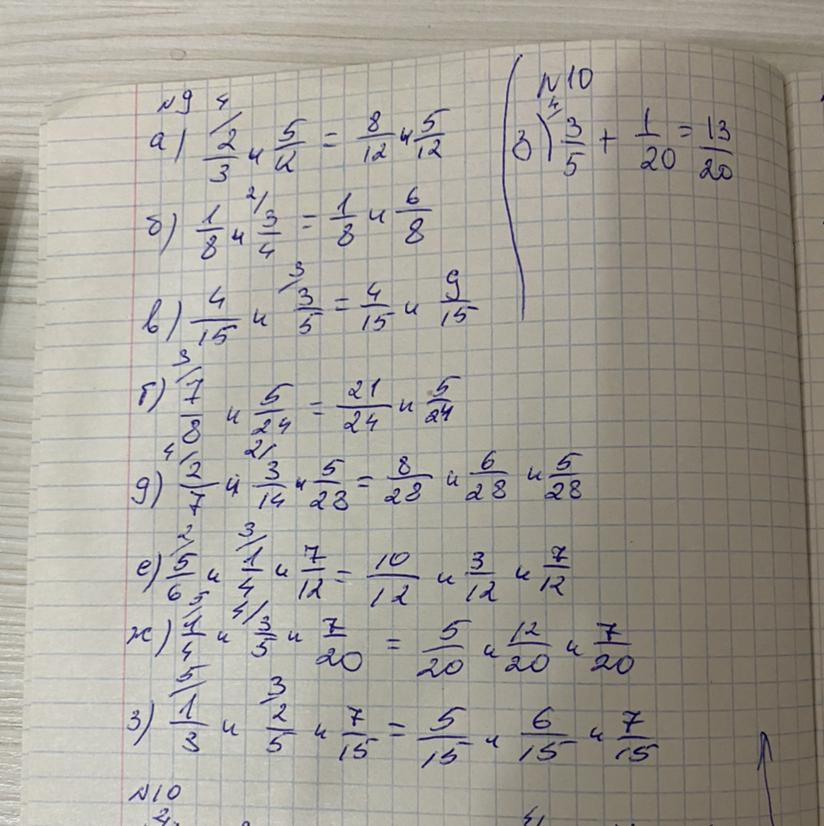 №9
а) 4/ 2/3 и 5/12 = 8/12 и 5/12
б) 1/8 и 2/ 3/4 = 1/8 и 6/8
в) 4/15 и 3/ 3/5 = 4/15 и 9/15
г) 3/ 7/8 и 5/24 = 21/24 и 5/24
д) 4/ 2/7 и 2/ 3/14 и 5/28 = 8/28 и 6/28 и 5/28
е) 2/ 5/6 и 3/ 1/4 и 7/12 = 10/12 и 3/12 и 7/12
ж) 5/ 1/4 и 4/ 3/5 и 7/20 = 5/20 и 12/20 и 7/20
з) 5/ 1/3 и 3/ 2/5 и 7/15 = 5/15 и 6/15 и 7/15
№10
№10
з) 4/ 3/5 + 1/20 = 13/20